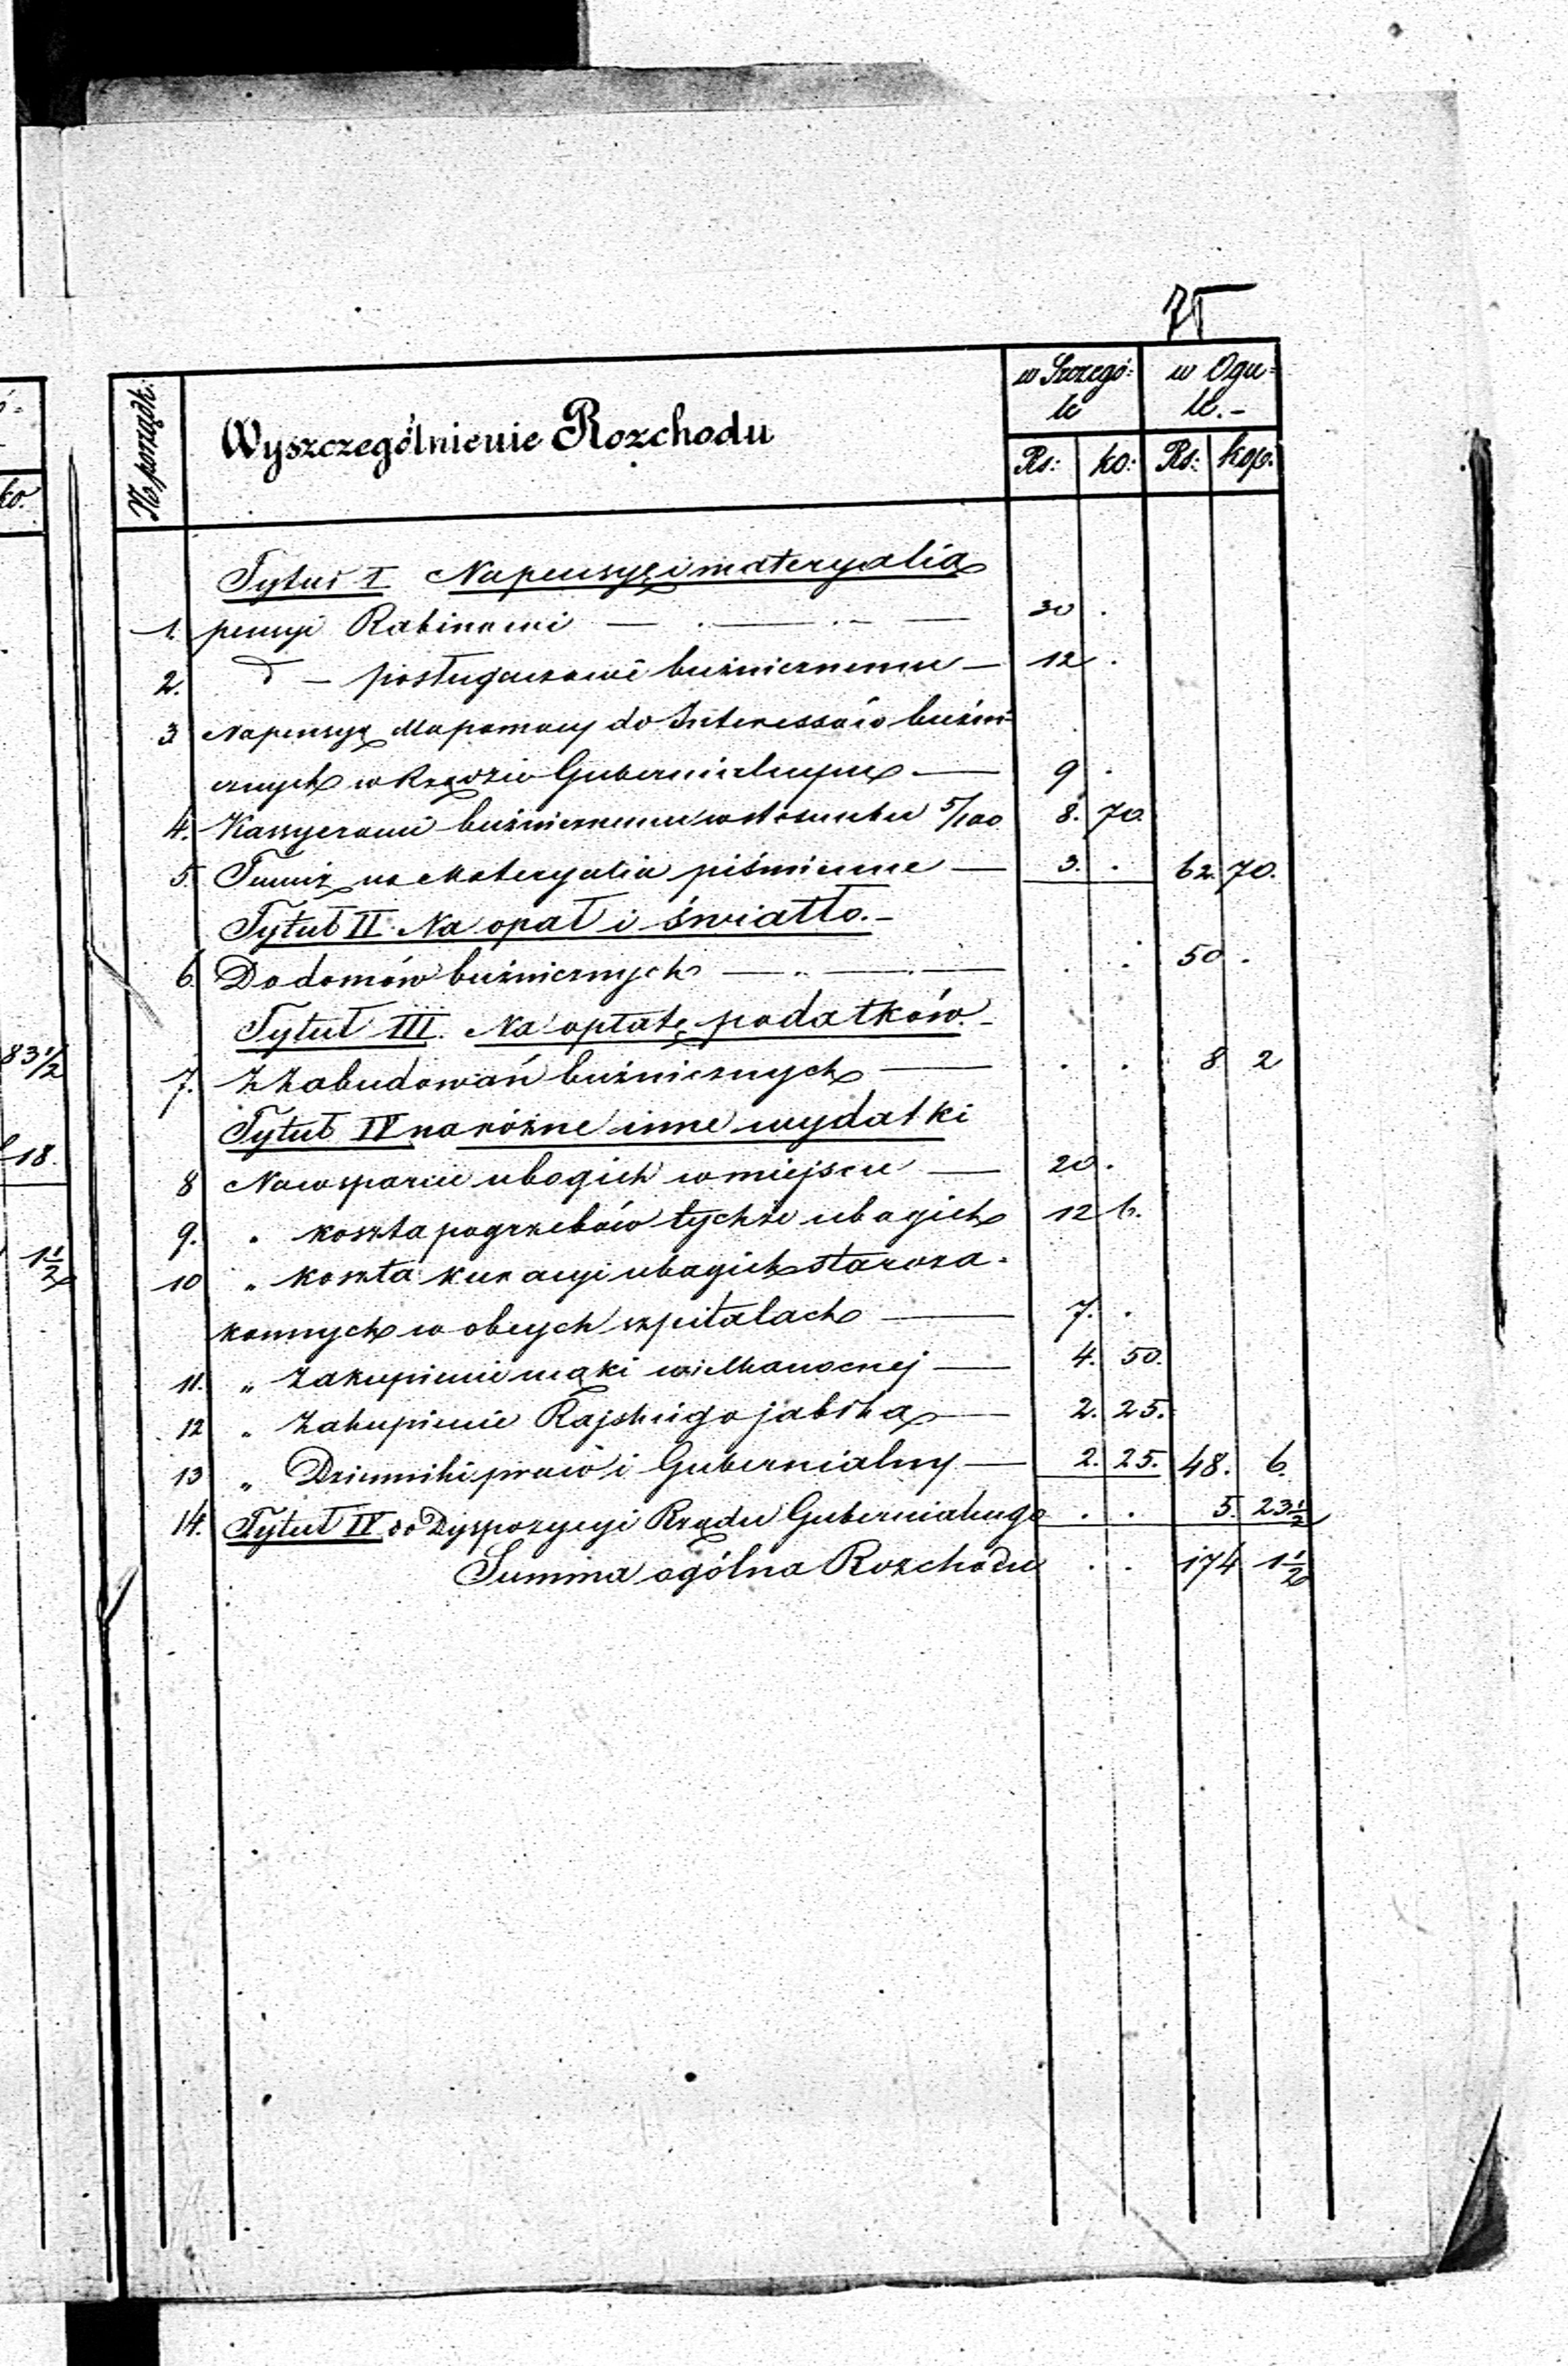 75
No porządk: Wyszczególnienie Rozchodu w Szczegó- w Ogu-
le le.-
Rs: ko: Rs: kop:
Tytuł I Na pensyę i materyalia
1. pensyi Rabinowi — 30 .
2. d — posługaczowi bużnicznemu — 12 .
3 Na pensyę dla pomocy do Interessów bużni-
cznych w Rządzie Gubernialnym — 9 .
4. Kassyerowi bużnicznemu w stosunku 5/100 8. 70.
5. Temuż na Materyalia piśmienne — 3. . 62. 70.
Tytuł II. Na opał i światło.-
6. Do domów bużnicznych — . . 50 .
Tytuł III. Na opłatę podatków.-
7. Z Zabudowań bużnicznych — . . 8. 2
Tytuł IV na różne inne wydatki
8 Na wsparcie ubogich w miejscu — 20 .
9. " koszta pogrzebów tychże ubogich 12 6.
10 " koszta kuracyi ubogich staroza-
konnych w obcych szpitalach — 7. .
11. " Zakupienie mąki wielkanocnej — 4. 50.
12 " Zakupienie Rajskiego jabłka — 2. 25.
13 " Dzienniki praw i Gubernialny — 2. 25. 48. 6.
14. Tytuł IV do Dyspozycyi Rządu Gubernialnego . . 5. 23½
Summa ogólna Rozchodu . . 174 1½
ko.
83½
18.
1½